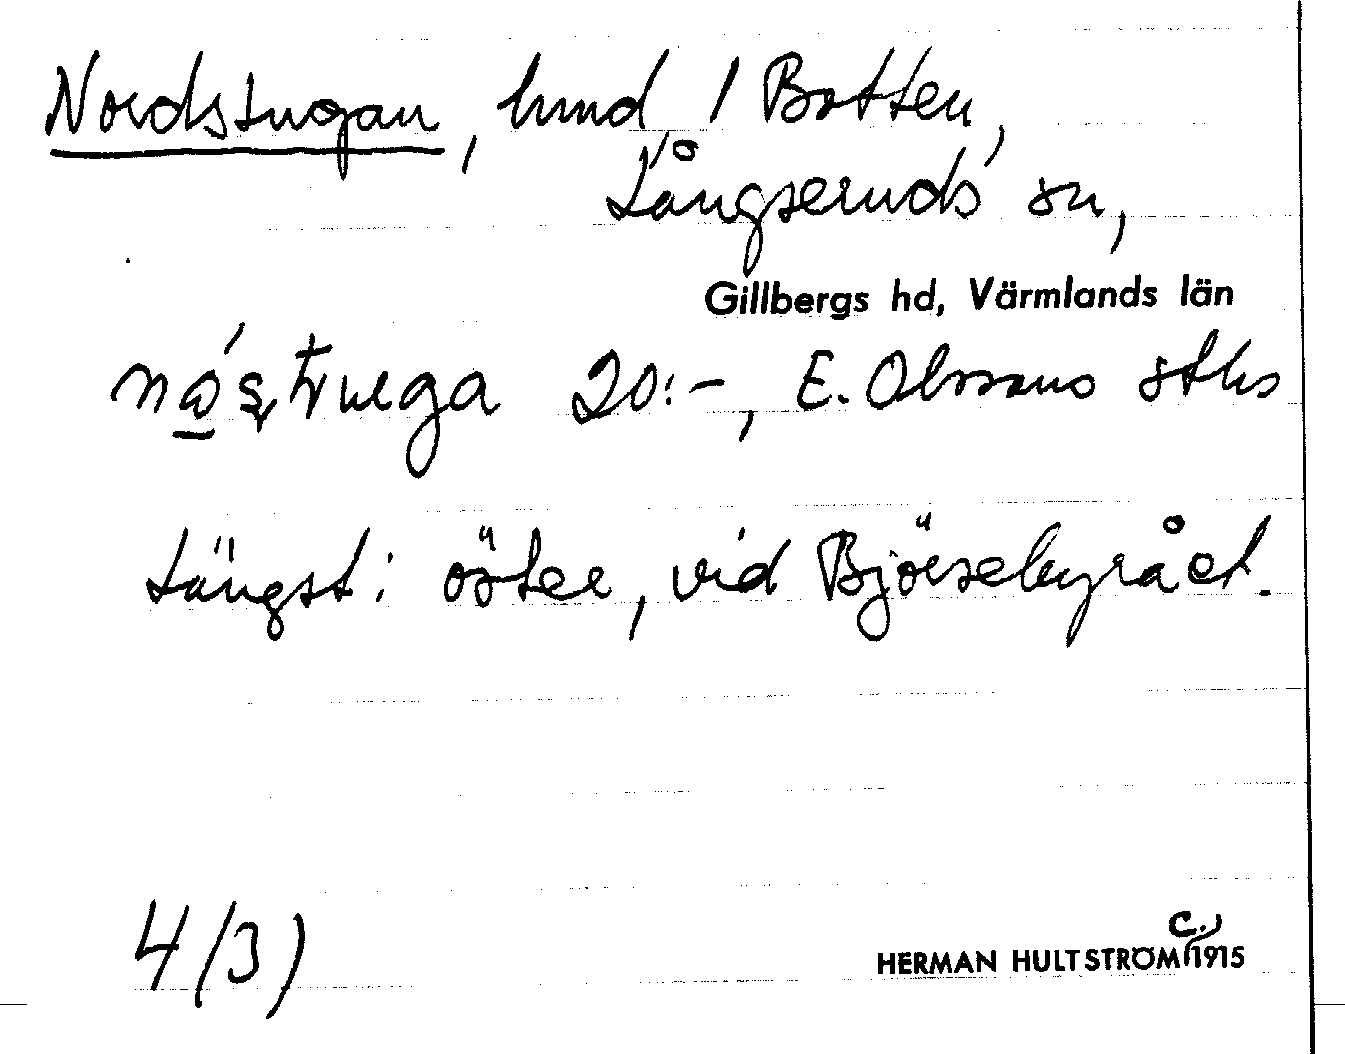 Nordstugan, hmd 1 Botten,
Långseruds sn,
Gillbergs hd, Värmlands län
20:-, E. Olssons sths
Längst i öster, vid Björsebyrået.
4/3)
C.
HERMAN HULTSTRÖM 1915